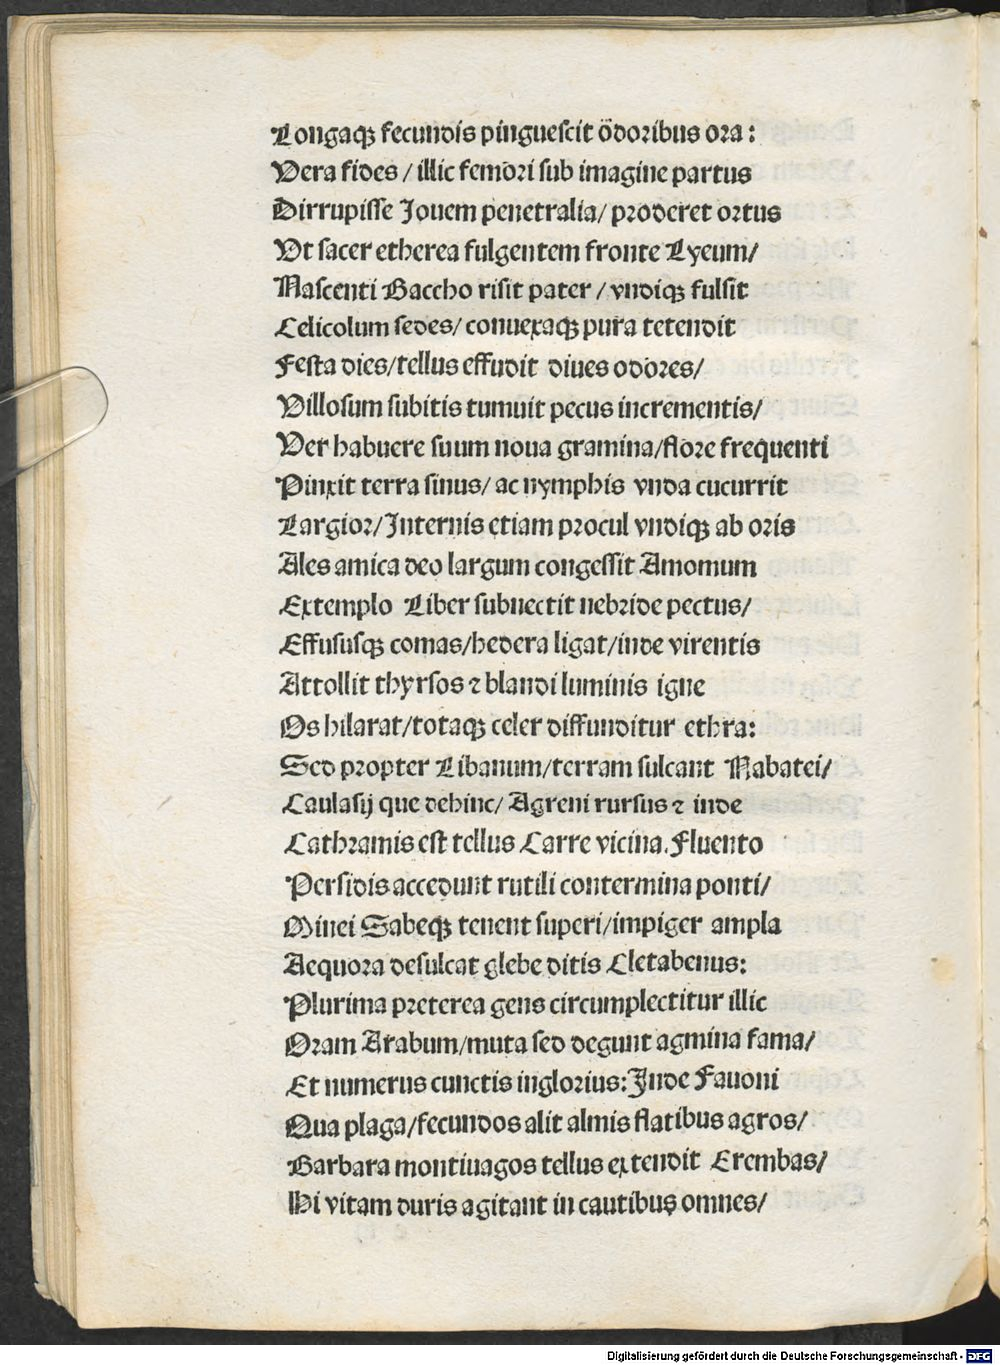 Longaqꝫ fecundis pinguescit odoribus ora:
Vera fides / illic femori sub imagine partus
Dirrupisse Jouem penetralia/ proderet ortus
Vt sacer etherea fulgentem fronte Lyeum/
Nascenti Baccho risit pater / vndiqꝫ fulsit
Celicolum sedes/ conuexaqꝫ pura tetendit
Festa dies/tellus effudit diues odores/
Villosum subitis tumuit pecus incrementis/
Ver habuere suum noua gramina/flore frequenti
Pinxit terra sinus/ ac nymphis vnda cucurrit
Largior/Internis etiam procul vndiqꝫ ab oris
Ales amica deo largum congessit Amomum
Extemplo Liber subnectit nebride pectus/
Effususqꝫ comas/hedera ligat/inde virentis
Attollit thyrsos ⁊ blandi luminis igne
Os hilarat/totaqꝫ celer diffunditur ethra:
Sed propter Libanum/terram sulcant Nabatei/
Caulasij que dehinc/ Agreni rursus ⁊ inde
Cathramis est tellus Carre vicina. Fluento
Persidis accedunt rutili contermina ponti/
Minei Sabeqꝫ tenent superi/impiger ampla
Aequora desulcat glebe ditis Cletabenus:
Plurima preterea gens circumplectitur illic
Oram Arabum/muta sed degunt agmina fama/
Et numerus cunctis inglorius: Inde Fauoni
Qua plaga/fecundos alit almis flatibus agros/
Barbara montiuagos tellus extendit Erembas/
Hi vitam duris agitant in cautibus omnes/
Digitalisierung gefördert durch die Deutsche Forschungsgemeinschaft - DFG